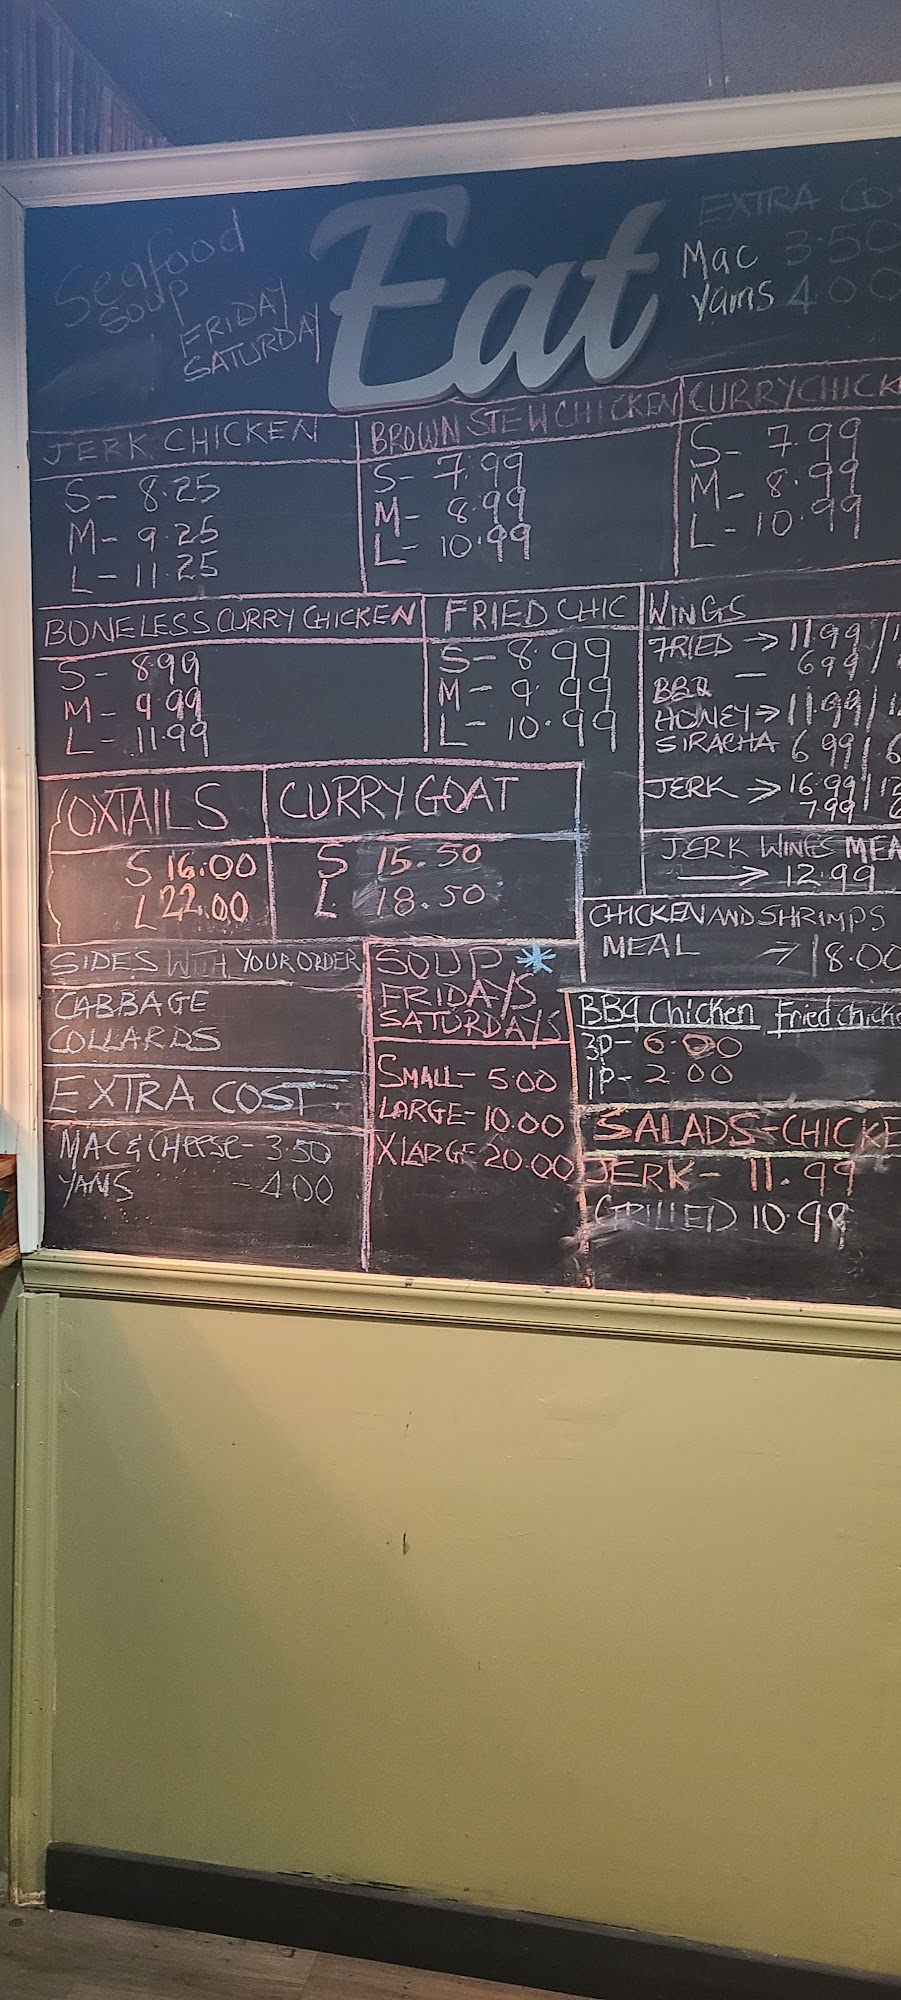 Seafood
Soup
FRIDAY
SATURDAY
Eat
EXTRA CO
Mac 3.50
Yams 400
JERK CHICKEN
S- 8.25
M- 9.25
L- 11.25
BROWN STEW CHICKEN
S- 7.99
M- 8.99
L- 10.99
CURRY CHICKE
S- 7.99
M- 8.99
L- 10.99
BONELESS CURRY CHICKEN
S- 8.99
M- 9.99
L- 11.99
FRIED CHIC
S- 8.99
M- 9.99
L- 10.99
WINGS
FRIED → 11.99 / 1
699 /
BBQ –
HONEY → 11.99 / 1
SIRACHA 6 99 / 6
JERK → 16.99 / 12
7.99
JERK WINGS MEA
→ 12.99
OXTAILS
S 16.00
L 22.00
CURRY GOAT
S 15.50
L 18.50
CHICKEN AND SHRIMPS
MEAL → 18.00
SIDES WITH YOUR ORDER
CABBAGE
COLLARDS
EXTRA COST
MAC & CHEESE - 3.50
YANS - 4.00
SOUP *
FRIDAYS
SATURDAYS
SMALL- 5.00
LARGE- 10.00
XLARGE 20.00
BBQ Chicken Fried chicke
3P- 6.00
1P- 2.00
SALADS-CHICKE
JERK- 11.99
(GRILLED) 10.99